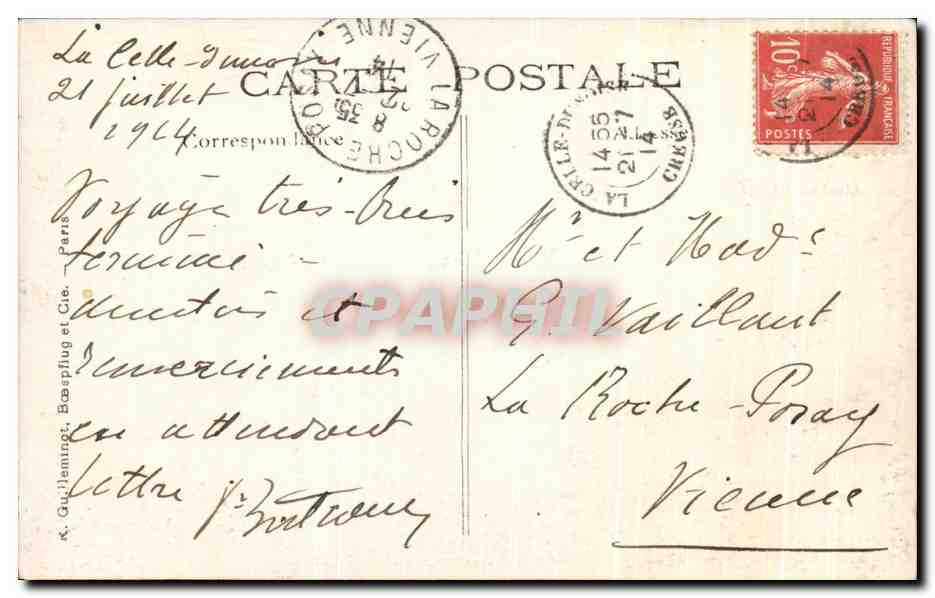 La Celle-Dunoise
21 juillet
1914
CARTE POSTALE
Correspondance
Adresse
LA ROCHE POSAY
VIENNE
8 35
LA CELLE-DUNOISE
14 55
21 -7
14
CREUSE
10c
REPUBLIQUE FRANÇAISE
POSTES
14
21
14
CREUSE
Voyage très-bien
terminé -
amitiés et
remerciements
en attendant
lettre
Mr et Madᵉ
G. Vaillant
La Roche-Posay
Vienne
R. Guilleminot, Bœspflug et Cie. Paris
CPAPHIL